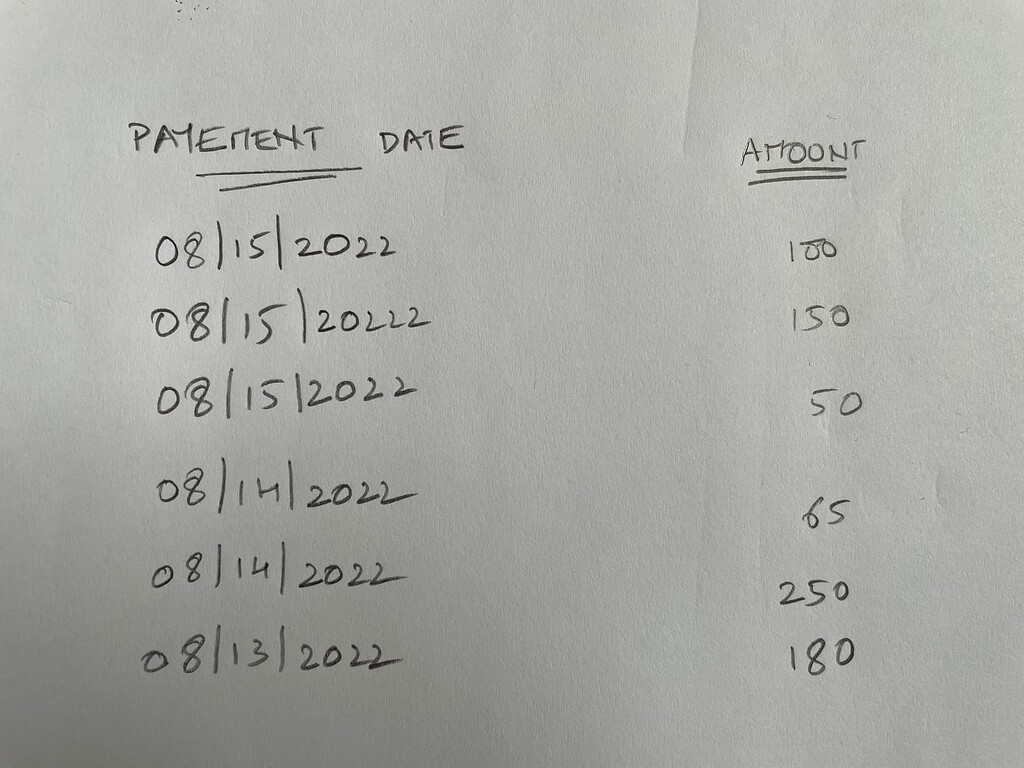 PAYEMENT DATE AMOONT
08/15/2022 100
08/15/20222 150
08/15/2022 50
08/14/2022 65
08/14/2022 250
08/13/2022 180